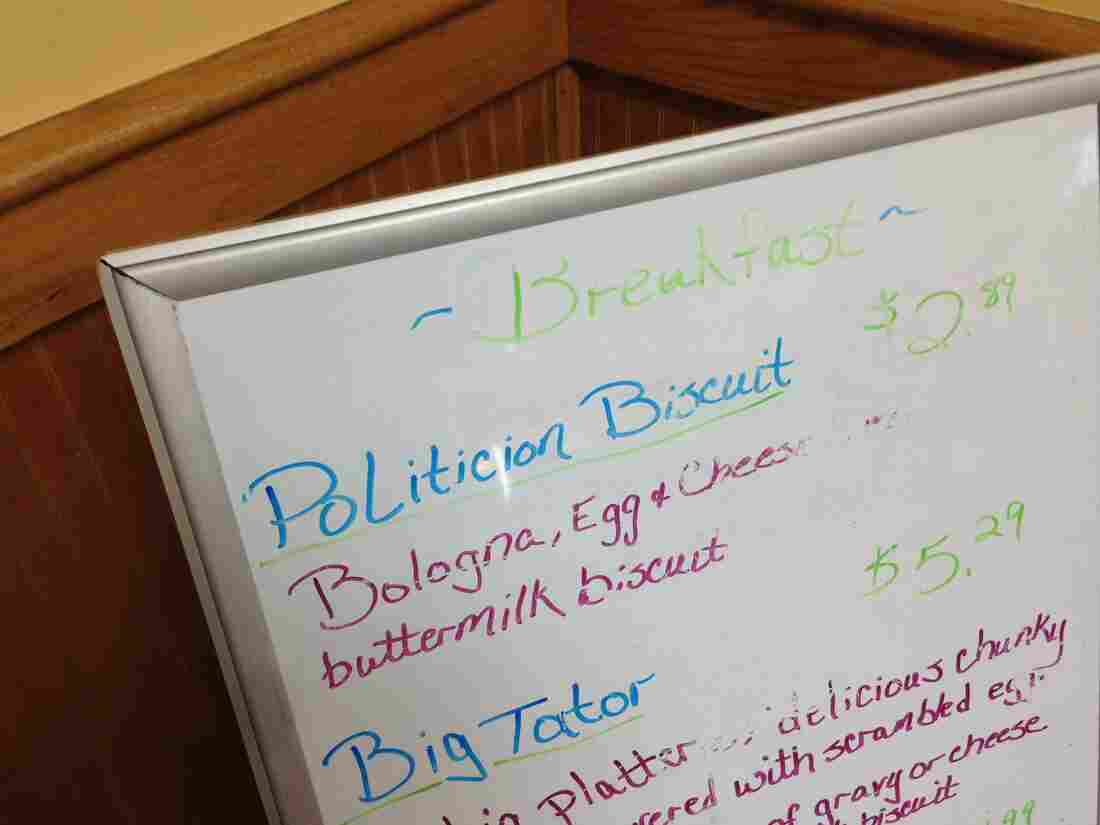 ~ Breakfast ~
$2.89
Politicion Biscuit
Bologna, Egg & Cheese
buttermilk biscuit
$5.29
Big Tator
big platter delicious chunky
with scrambled egg
of gravy or cheese
biscuit